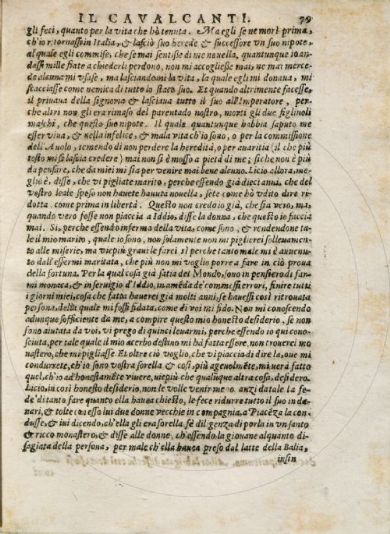 IL CAVALCANTI. 79
gli feci, quanto per la vita che hò tenuta. Ma egli se ne morì prima,
ch'io ritornassi in Italia, & lasciò suo herede & successore vn suo nipote,
al quale egli commise, che se mai sentisse di me nouella, quantunque io an-
dassi mille fiate à chiederli perdono, non mi accogliesse mai, ne mai merce-
de alcuna mi vsasse, ma lasciandomi la vita, la quale egli mi donaua, mi
scacciasse come nemica di tutto lo stato suo. Et quando altrimente facesse,
il priuaua della signoria & lasciaua tutto il suo all'Imperatore, per-
che altri non gli era rimaso del parentado nostro, morti gli due figliuoli
maschi, che questo suo nipote. Il quale quantunque habbia saputo me
esser viua, & nella infelice, & mala vita ch'io sono, o per la commissione
dell'Auolo, temendo di non perdere la heredità, o per auaritia (il che più
tosto mi si lascia credere) mai non si è mosso a pietà di me; si che non è più
da pensare, che da miei mi sia per venire mai bene alcuno. Licio allora, me-
glio è, disse, che vi pigliate marito, perche essendo già dieci anni, che del
vostro leale sposo non hauete hauuta nouella, sete come hò vdito dire re-
dotta come prima in libertà. Questo non credo io già, che sia vero, ma,
quando vero fosse non piaccia a Iddio, disse la donna, che questo io faccia
mai. Si, perche essendo inferma della vita, come sono, & rendendone ta-
le il mio marito, quale io sono, non solamente non mi piglierei solleuamen-
to alle miserie, ma vie più graui le farei. sì perche tanto male mi è auenu-
to dall'essermi maritata, che più non mi voglio porre a fare in ciò proua
della fortuna. Per la qual cosa già satia del Mondo, sono in pensiero di far-
mi monaca, & in seruigio d'Iddio, in ameda de' commessi errori, finire tutti
i giorni miei, cosa che fatta hauerei già molti anni, se hauessi così ritrouata
persona, della quale mi fossi fidata, come di voi mi fido. Non mi conoscendo
adunque sofficiente da me, a compire questo mio honesto desiderio, se non
sono aiutata da voi, vi prego di quinci leuarmi, perche essendo io qui cono-
sciuta, per tale quale il mio acerbo destino mi hà fatta essere, non trouerei mo
nastero, che mi pigliasse Et oltre ciò voglio, che vi piaccia di dire là, oue mi
condurrete, ch'io sono vostra sorella & così, più ageuolmente, mi uerà fatto
quel, ch'io ad honestamẽte viuere, uie più che qualunque altra cosa, desidero.
Licio, udita così honesto desiderio, non le volle venir meno anzi, data le la fe-
de di tanto fare quanto ella haueua chiesto, le fece ridurre tutto il suo in da-
nari, & tolte con esso lui due donne vecchie in compagnia, a Piacẽza la con-
dusse, & iui dicendo, ch'ella gli era sorella, fè diligenza di porla in vn santo
& ricco monastero, & disse alle donne, ch'essendo la giouane alquanto di-
sagiata della persona, per male ch'ella haueua preso dal latte della Balia,
insin